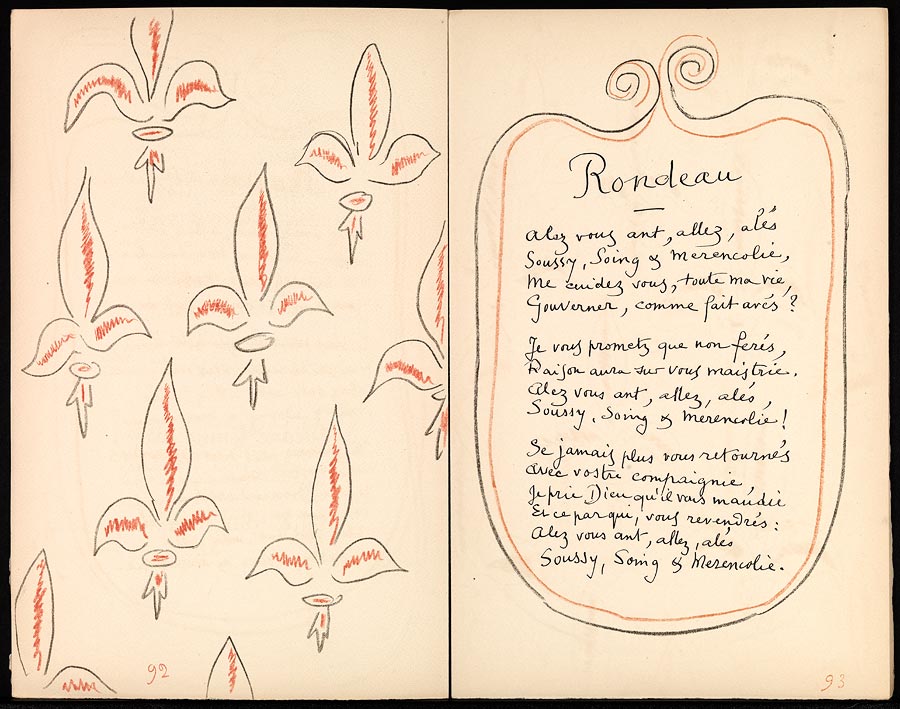 92
Rondeau
Alez vous ant, allez, alés
Soussy, Soing & Merencolie,
Me cuidez vous, toute ma vie,
Gouverner, comme fait avés ?
Je vous prometz que non ferés,
Raison aura sur vous maistrie.
Alez vous ant, allez, alés,
Soussy, Soing & Merencolie !
Se jamais plus vous retournés
Avec vostre compaignie,
Je prie Dieu qu'il vous maudie
Et ce par qui, vous revendrés :
Alez vous ant, allez, alés
Soussy, Soing & Merencolie.
93